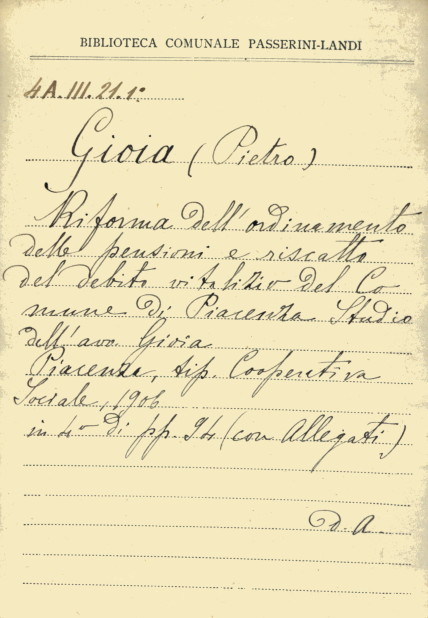 BIBLIOTECA COMUNALE PASSERINI-LANDI
4A.III.21.1º
Gioia (Pietro)
Riforma dell'ordinamento
delle pensioni e riscatto
del debito vitalizio del Co
mune di Piacenza Studio
dell'avv Gioia
Piacenza, tip. Cooperativa
Sociale, 1906
in 4º di pp. 94 (con Allegati)
D. A.